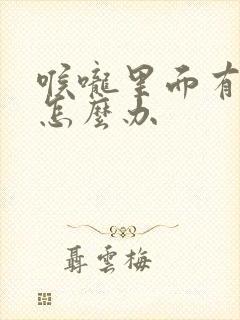 喉嚨里而有
怎麼办
聶雲梅